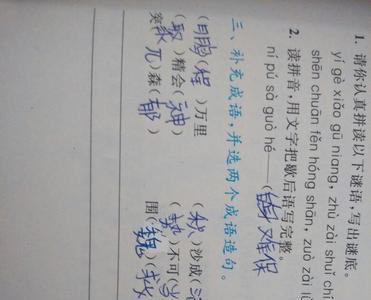 1. 请你认真拼读以下谜语,写出谜底。
yí gè xiǎo gū niang, zhù zài shuǐ
shēn chuān fěn hóng shān, zuò zài
2. 读拼音,用文字把歇后语写完整。
ní pú sà guò hé——(自身难保
三、补充成语,并选两个成语造句。
(鹏)(程)万里 ( )沙成(
(聚)精会(神) (势)不可(当
突兀森(郁) 围(魏)(救